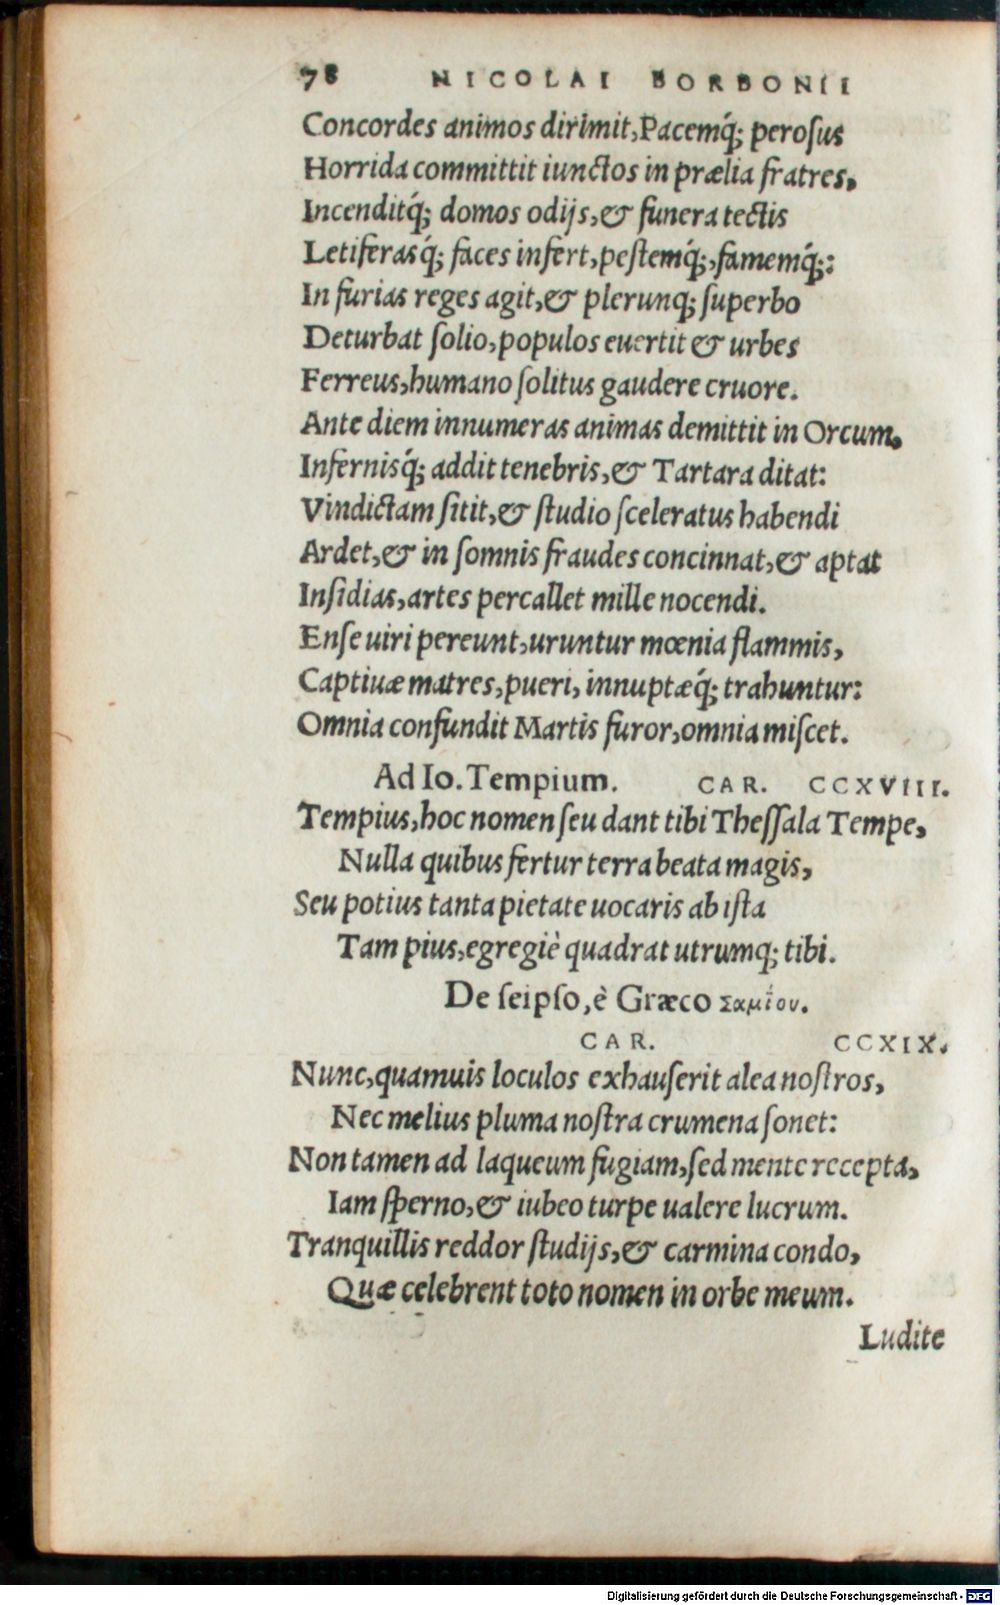 78 NICOLAI BORBONII
Concordes animos dirimit, Pacemq́; peroſus
Horrida committit iunctos in prælia fratres,
Incenditq́; domos odijs, & funera tectis
Letiferasq́; faces infert, peſtemq́;, famemq́;:
In furias reges agit, & plerunq; ſuperbo
Deturbat ſolio, populos euertit & urbes
Ferreus, humano ſolitus gaudere cruore.
Ante diem innumeras animas demittit in Orcum,
Infernisq́; addit tenebris, & Tartara ditat:
Vindictam ſitit, & ſtudio ſceleratus habendi
Ardet, & in ſomnis fraudes concinnat, & aptat
Inſidias, artes percallet mille nocendi.
Enſe uiri pereunt, uruntur mœnia flammis,
Captiuæ matres, pueri, innuptæq́; trahuntur:
Omnia confundit Martis furor, omnia miſcet.
Ad Io. Tempium. CAR. CCXVIII.
Tempius, hoc nomen ſeu dant tibi Theſſala Tempe,
Nulla quibus fertur terra beata magis,
Seu potius tanta pietate uocaris ab iſta
Tam pius, egregiè quadrat utrumq; tibi.
De ſeipſo, è Græco Σαμίου.
CAR. CCXIX.
Nunc, quamuis loculos exhauſerit alea noſtros,
Nec melius pluma noſtra crumena ſonet:
Non tamen ad laqueum fugiam, ſed mente recepta,
Iam ſperno, & iubeo turpe ualere lucrum.
Tranquillis reddor ſtudijs, & carmina condo,
Quæ celebrent toto nomen in orbe meum.
Ludite
Digitalisierung gefördert durch die Deutsche Forschungsgemeinschaft - DFG